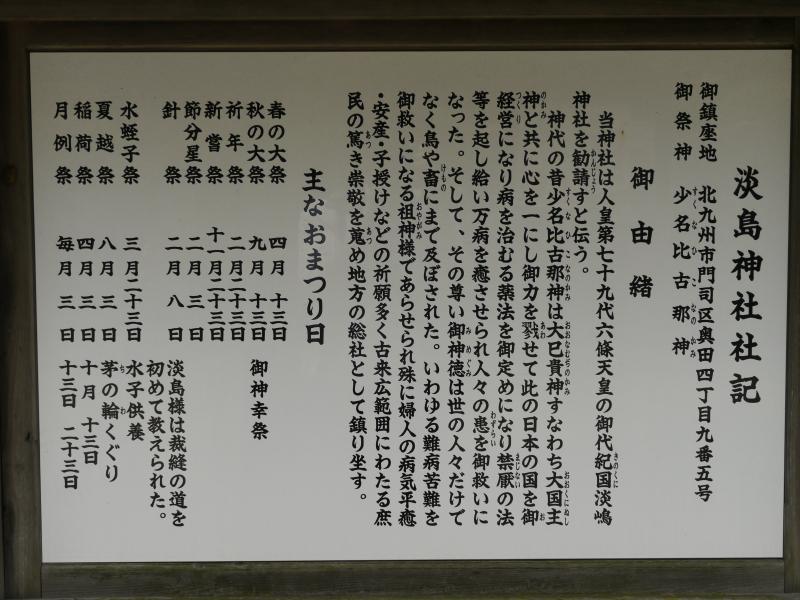 淡島神社社記
御鎮座地 北九州市門司区奥田四丁目九番五号
御祭神 少名比古那神
すくなひこなのかみ
御由緒
当神社は人皇第七十九代六條天皇の御代紀国淡嶋
きのくに
神社を勧請すと伝う。
かんじょう
神代の昔少名比古那神は大巳貴神すなわち大国主
すくなひこなのかみ おおなむちのかみ おおくにぬし
神と共に心を一にし御力を戮せて此の日本の国を御
のかみ あわ お
経営になり病を治むる薬法を御定めになり禁厭の法
つくり まじない
等を起し給い万病を癒させられ人々の患を御救いに
わずらい
なった。そして、その尊い御神徳は世の人々だけで
みめぐみ
なく鳥や畜にまで及ぼされた。いわゆる難病苦難を
けもの
御救いになる祖神様であらせられ殊に婦人の病気平癒
おやがみ
・安産・子授けなどの祈願多く古来広範囲にわたる庶
民の篤き崇敬を蒐め地方の総社として鎮り坐す。
あつ あつ
主なおまつり日
春の大祭 四月十三日
秋の大祭 九月十三日 御神幸祭
祈年祭 二月二十三日
新嘗祭 十一月二十三日
節分星祭 二月三日
針祭 二月八日 淡島様は裁縫の道を
初めて教えられた。
水蛭子祭 三月二十三日 水子供養
夏越祭 八月三日 茅の輪くぐり
ちわ
稲荷祭 四月三日 十月十三日
月例祭 毎月三日 十三日 二十三日